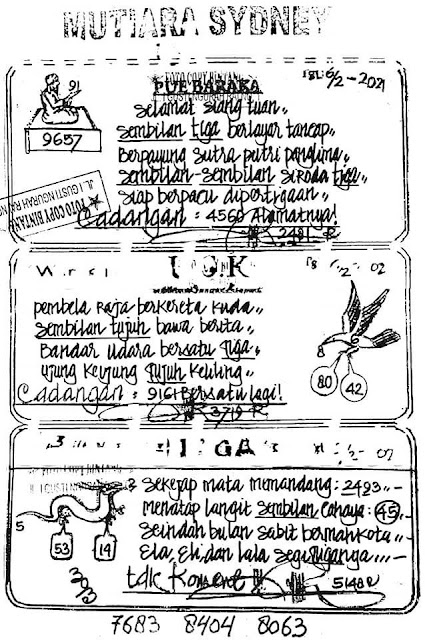 MUTIARA SYDNEY
PUE BARAKA
TGL: 6/2-2021
FOTO COPY BINTANG
JL. I GUSTI NGURAH RAI NO
91
9657
Selamat siang tuan,,
sembilan tiga berlayar tancap,,
Berpayung sutra putri panglima,,
sembilan-sembilan si roda tiga,,
siap berpacu dipertigaan,,
Cadangan : 4560 Alamatnya!
2481-R
pembela Raja berkereta kuda,,
sembilan tujuh bawa berita,,
Bandar udara bersatu tiga,,
ujung keujung tujuh keliling,,
Cadangan : 9161 Bersatu lagi!
3719-R
8
80 42
FOTO COPY BINTANG
JL. I GUSTI NGURAH RAI NO
sekejap mata memandang : 2493,,,-
menatap langit sembilan cahaya : 45,,-
seindah bulan sabit bermahkota,,-
Ela, Eli, dan lala segitiganya,,,-
5
53 14
30/3
tdk Koment
5148R
7683 8404 8063